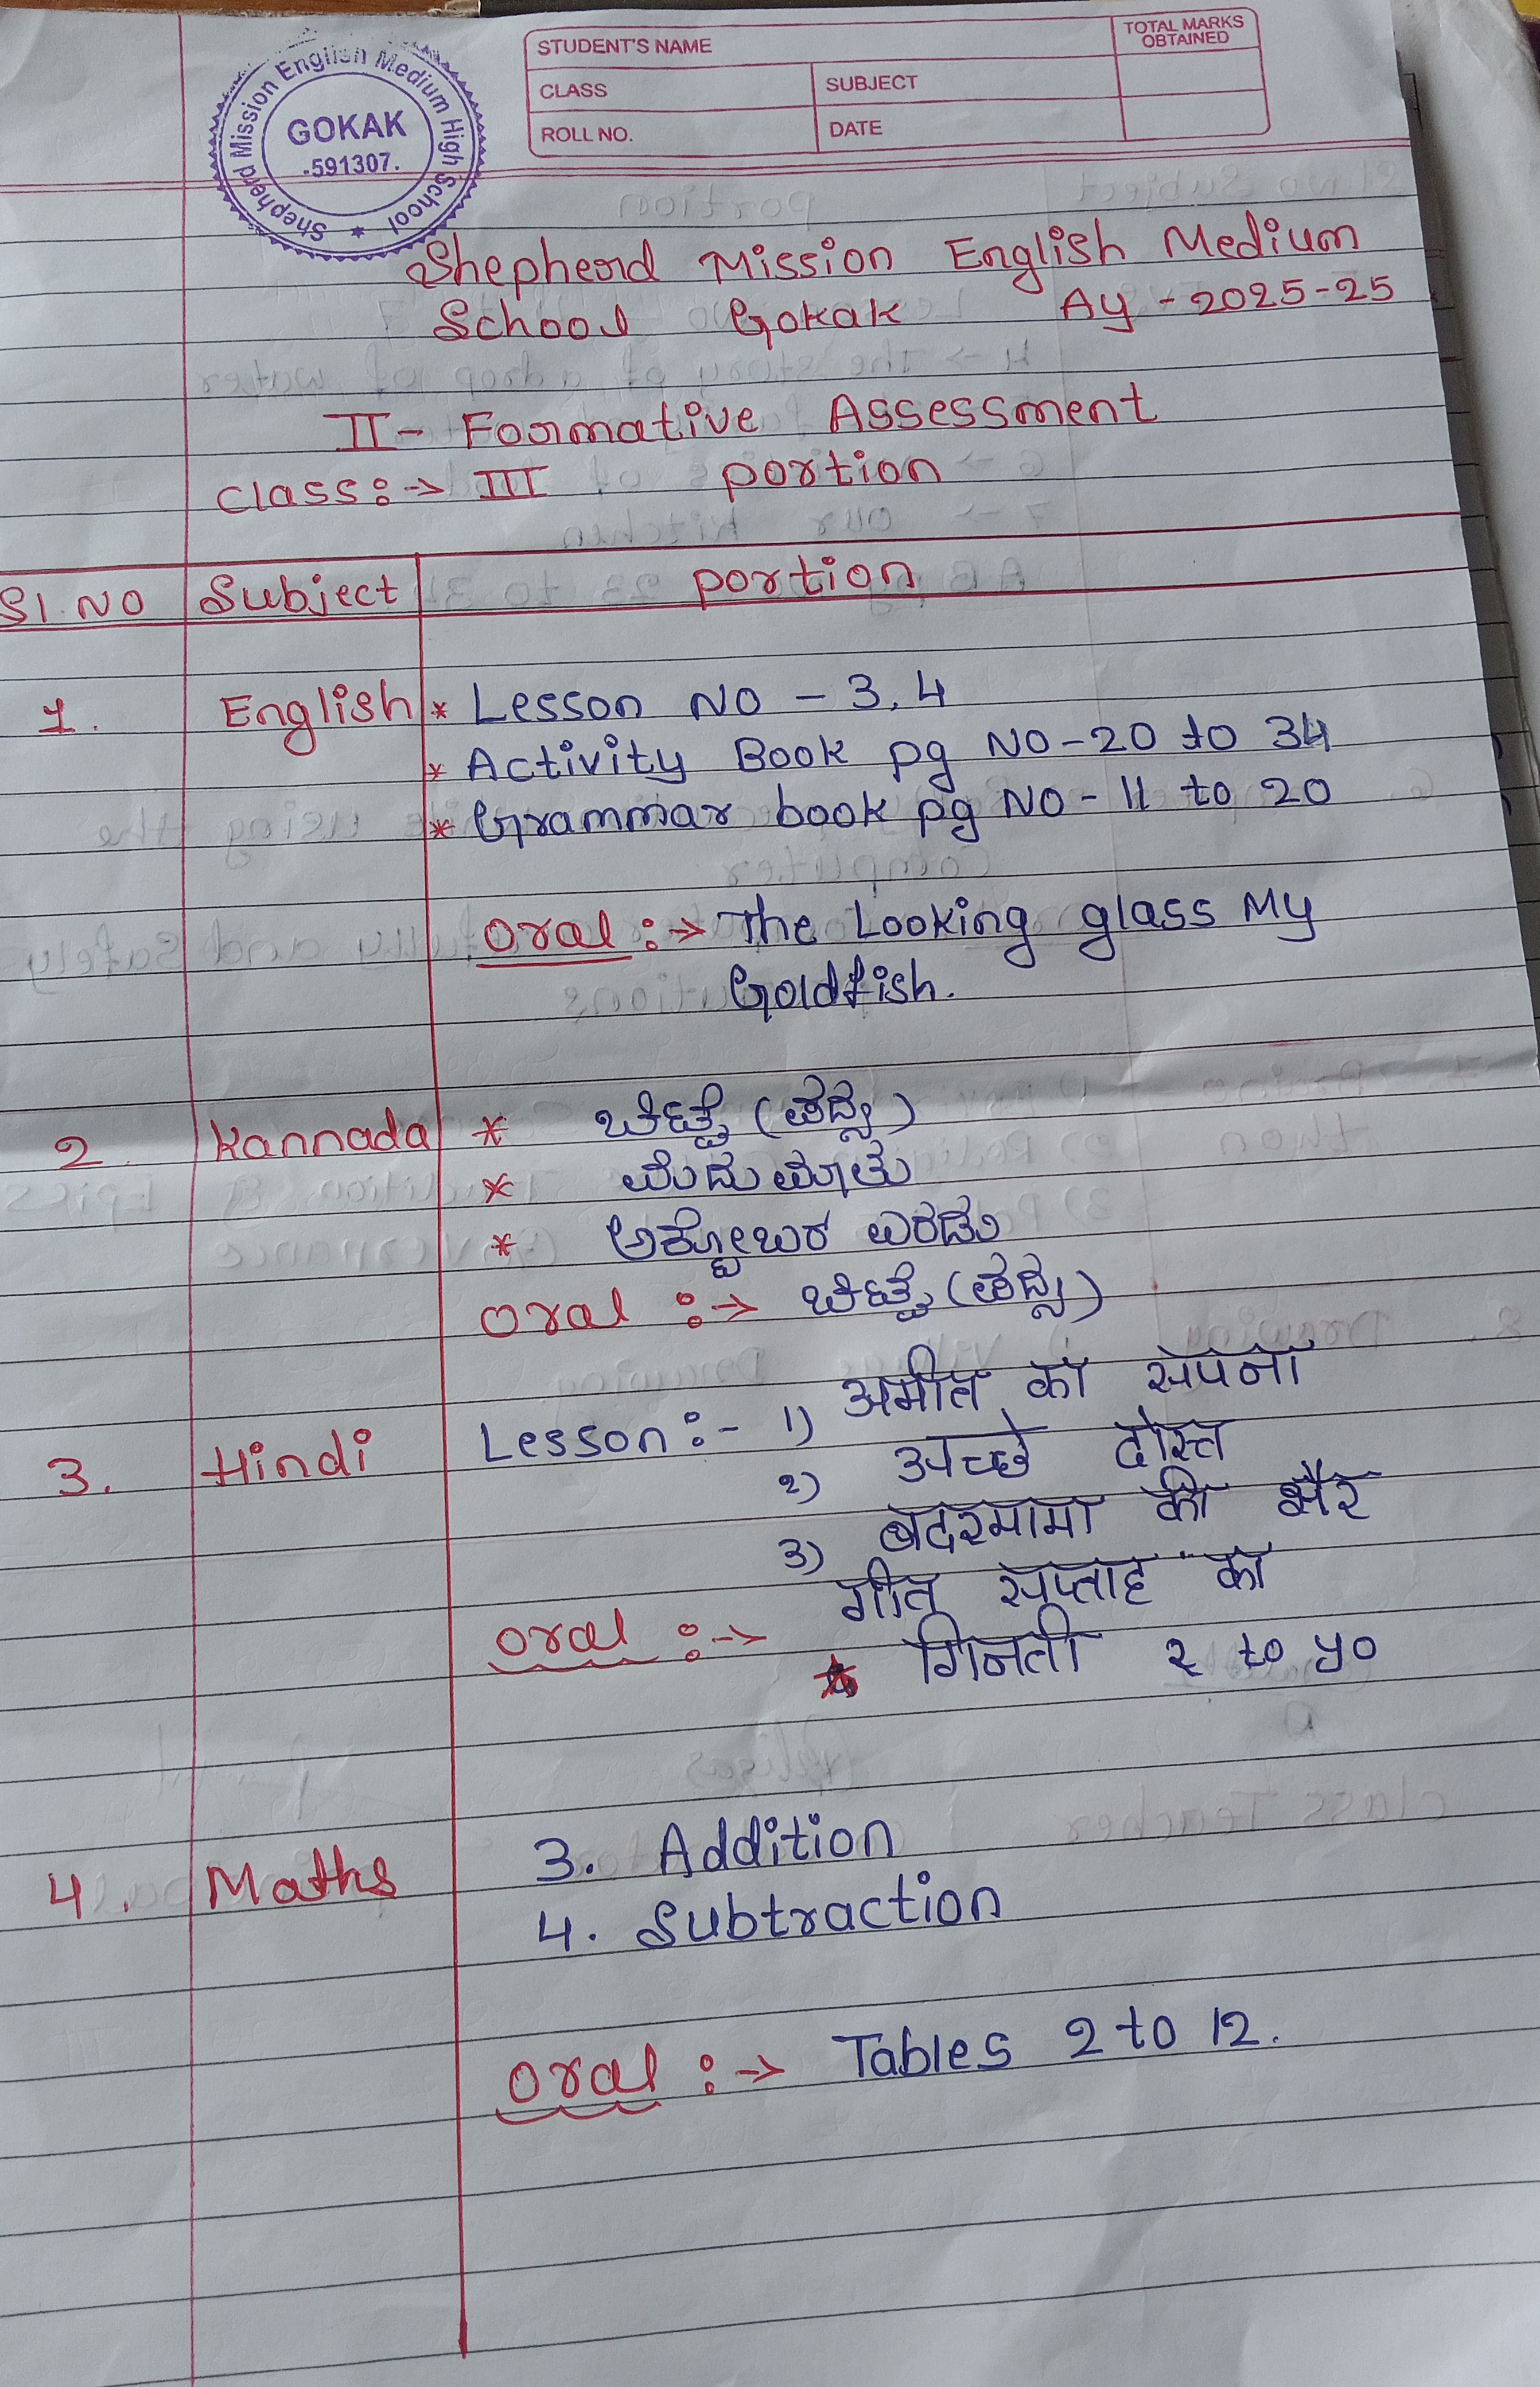 Shepherd Mission English Medium High School
GOKAK
-591307.
STUDENT'S NAME
TOTAL MARKS OBTAINED
CLASS
SUBJECT
ROLL NO.
DATE
Shepherd Mission English Medium
School Gokak AY - 2025-25
II - Formative Assessment
Class:-> III portion
Sl. No Subject portion
1. English * Lesson No - 3, 4
* Activity Book pg No - 20 to 34
* Grammar book pg No - 11 to 20
Oral :-> The Looking glass My
Goldfish.
2. Kannada * ಚಿಟ್ಟೆ (ಪದ್ಯ)
*
* ಅಕ್ಟೋಬರ ಎರಡು
Oral :-> ಚಿಟ್ಟೆ (ಪದ್ಯ)
3. Hindi Lesson :- 1) अमीत का सपना
2) अच्छे दोस्त
3) बंदरमामा की सैर
Oral :-> गीत सप्ताह का
* गिनती २ to ५०
4. Maths 3. Addition
4. Subtraction
Oral :-> Tables 2 to 12.